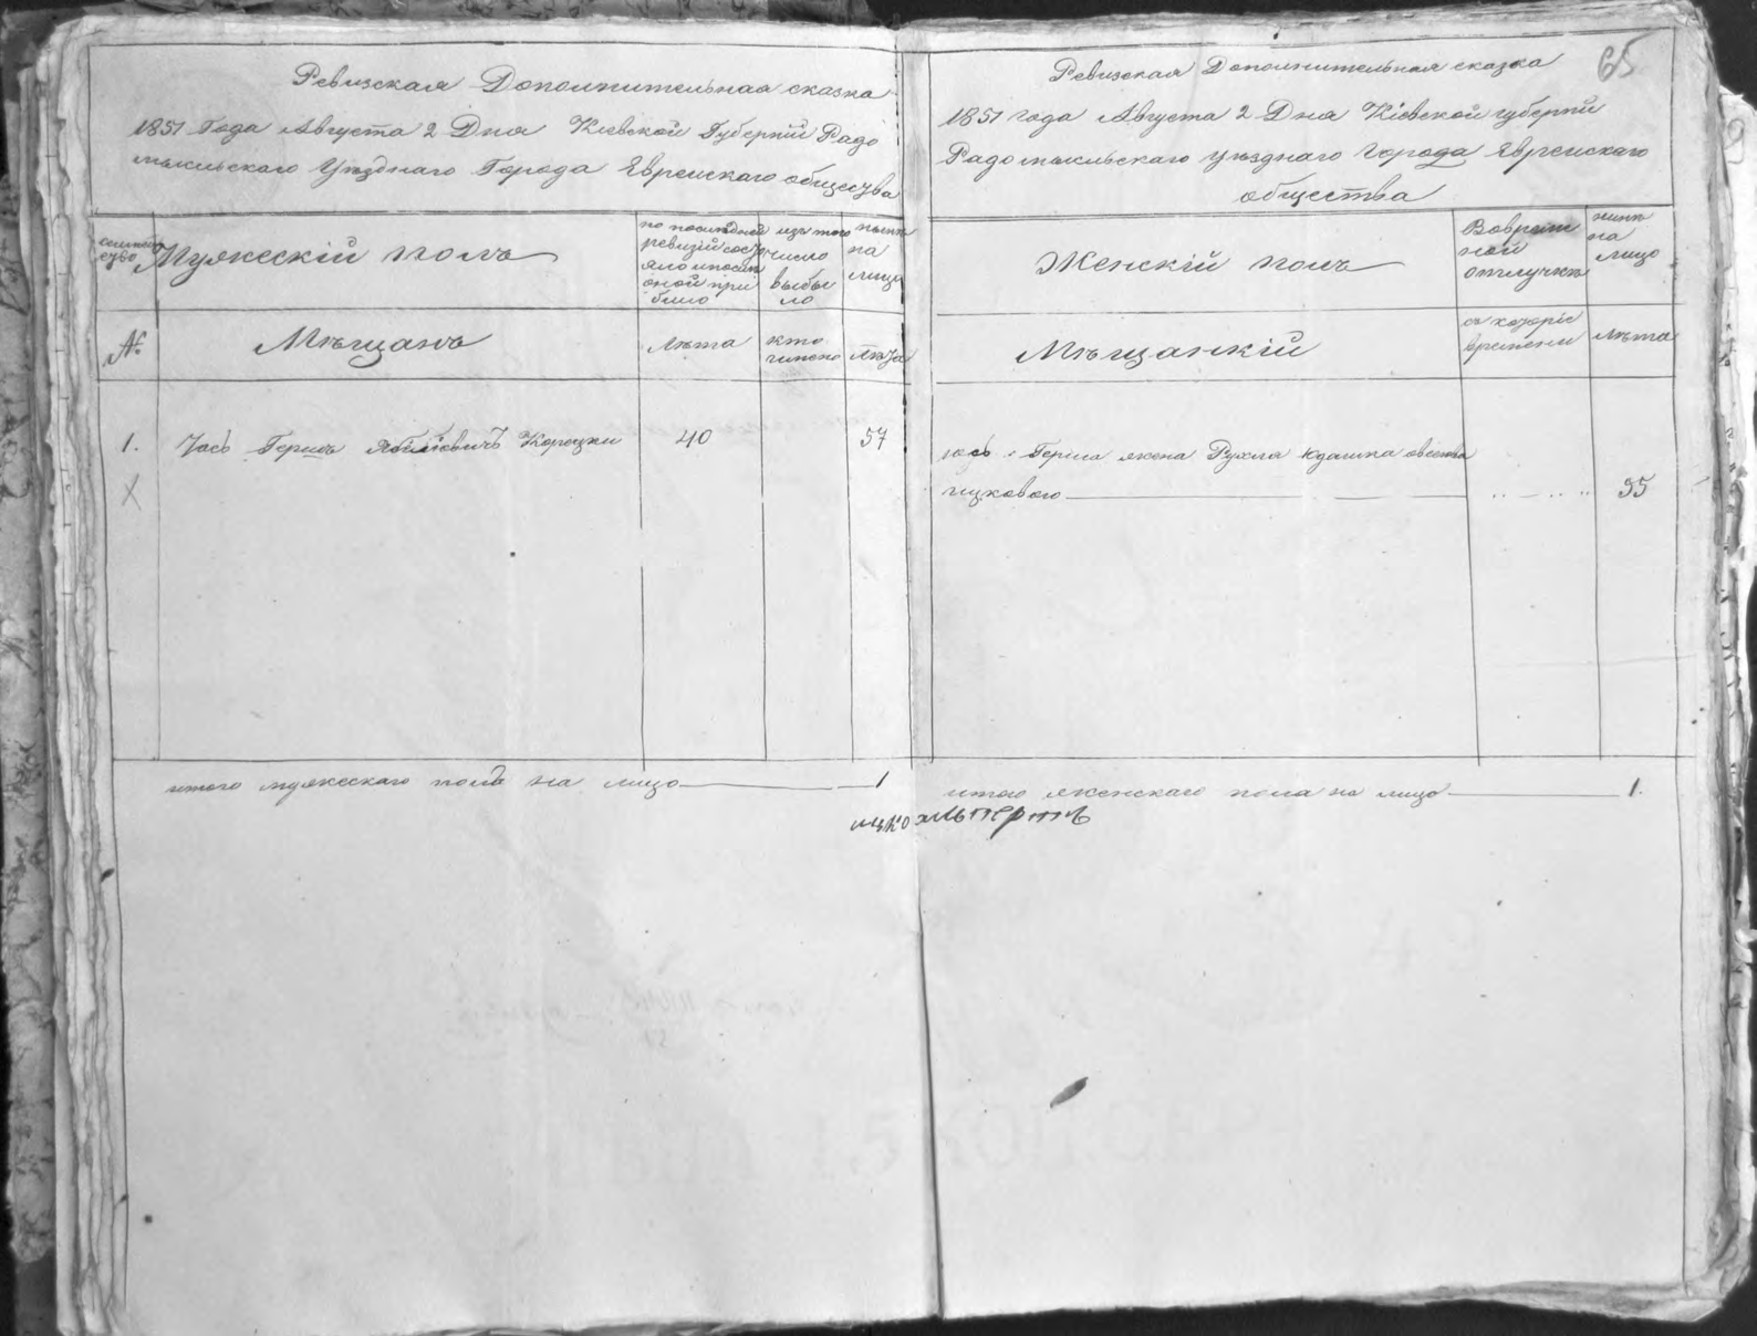 Ревизская Дополнительная сказка
1851 Года Августа 2 Дня Кіевской Губерній Радо
мысльскаго Уѣзднаго Города Еврейскаго общества
Мужескій полъ
по последней
ревизій
изъ того
число
выбы
ло
нынѣ
на
лицо
№
Мѣщанъ
лѣта
кто
именно
лѣта
1. Іось Гершъ Корецки 40 57
X
итого мужескаго пола на лицо 1
65
Ревизская Дополнительная сказка
1851 года Августа 2 Дня Кіевской губерній
Радомысльскаго уѣзднаго города Еврейскаго
общества
Женскій полъ
Вовремен
ной
отлучки
нынѣ
на
лицо
Мѣщанкій
съ котораго
времени
лѣта
Іось Герша жена Рухля Юдашка
ицкового 35
итого женскаго пола на лицо 1.
ицко альпертъ